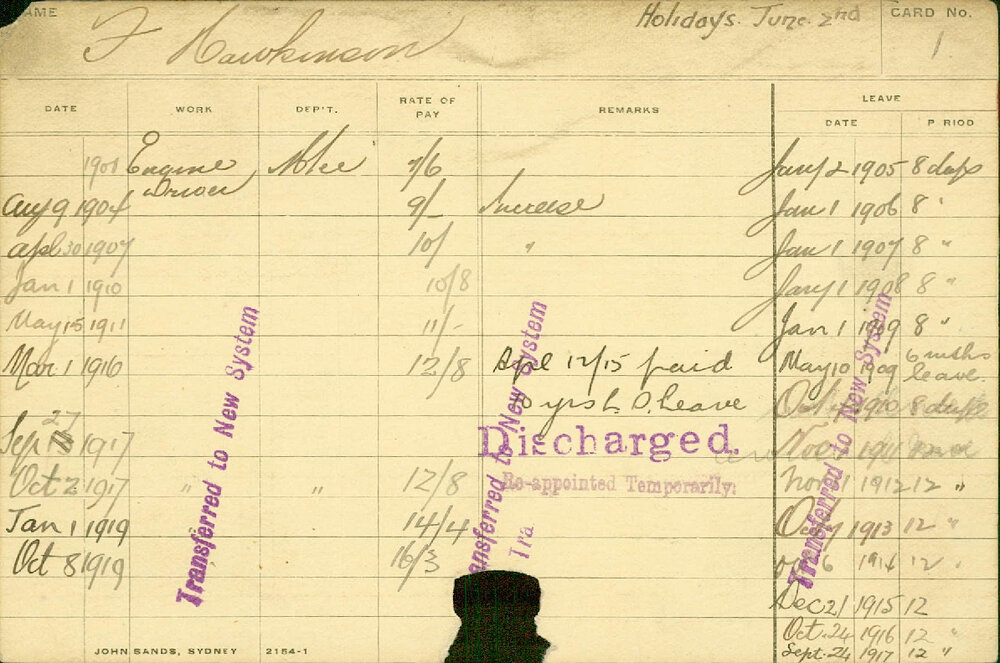 NAME F Hawkinson Holidays. June 2nd CARD No. 1
DATE WORK DEP'T. RATE OF PAY REMARKS LEAVE
DATE P RIOD
1901 Engine Driver 7/6 Jany 2 1905 8 days
Aug 9 1904 9/- Increase Jan 1 1906 8 "
Apl 30 1907 10/ " Jan 1 1907 8 "
Jan 1 1910 10/8 Jany 1 1908 8 "
May 15 1911 11/- Jan 1 1909 8 "
Mar 1 1916 12/8 Apl 12/15 paid May 10 1909 6 mths leave.
10 yrs L. S. Leave Oct 1910 8 days
Sep 27 1917 Discharged. Nov 1911
Oct 2 1917 " " 12/8 Re-appointed Temporarily. Nov 1 1912 12 "
Jan 1 1919 14/4 Oct 1913 12 "
Oct 8 1919 16/3 6 1914 12 "
Dec 21 1915 12
Oct. 24 1916 12 "
Sept. 24 1917 12 "
Transferred to New System
Transferred to New System
Tra
Transferred to New System
JOHN SANDS, SYDNEY 2154-1